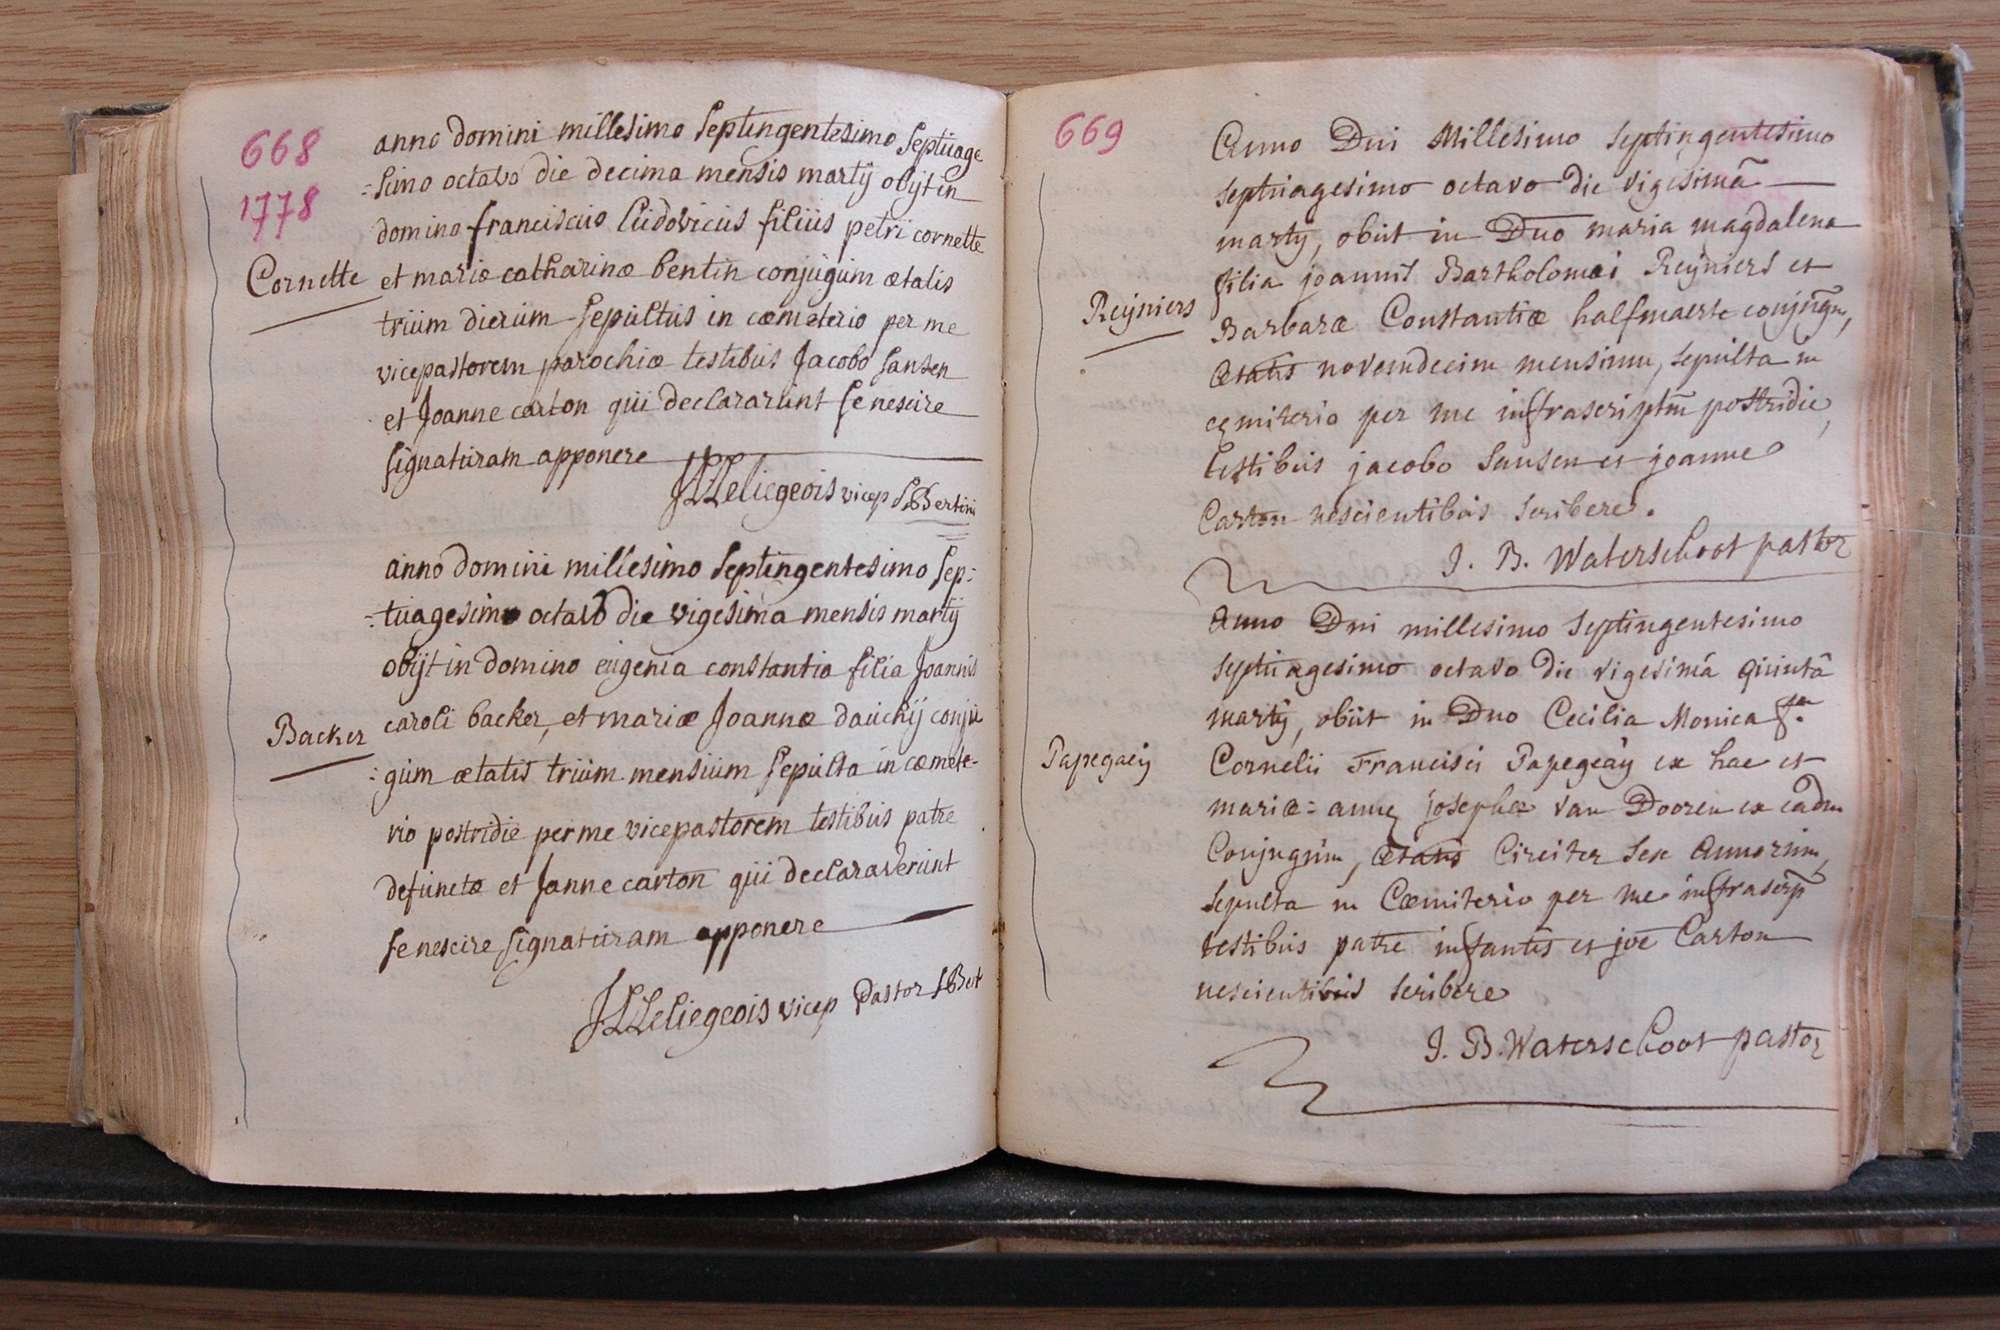 668
1778
Cornette
anno domini millesimo septingentesimo septuage
=simo octavo die decima mensis martij obijt in
domino franciscus ludovicus filius petri cornette
et mariæ catharinæ bentin conjugum ætatis
trium dierum sepultus in cœmeterio per me
vicepastorem parochiæ testibus Jacobo sansen
et Joanne carton qui declararunt se nescire
signaturam apponere
JLLeliegeois vicep StBertini
anno domini millesimo septingentesimo sep=
=tuagesimo octavo die vigesima mensis martij
obijt in domino eugenia constantia filia Joannis
Backer
caroli backer, et mariæ Joannæ dauchij conju
=gum ætatis trium mensium sepulta in cœmete-
rio postridie per me vicepastorem testibus patre
defunctæ et Janne carton qui declaraverunt
se nescire signaturam apponere
JLLeliegeois vicep Pastor SBert
669
Anno Dni Millesimo septingentesimo
septuagesimo octavo die vigesimâ
martij, obiit in Dno maria magdalena
filia joannis Bartholomæi Reijniers et
Reijniers
Barbaræ Constantiæ halfmaerte conjugum,
ætatis novemdecim mensium, sepulta in
cemiterio per me infrascriptum postridie,
testibus jacobo Sansen et joanne
Carton nescientibus scribere.
J. B. Waterschoot pastor
Anno Dni millesimo septingentesimo
septuagesimo octavo die vigesimâ quintâ
martij, obiit in Dno Cecilia Monica fa.
Papegaeij
Cornelii Francisci Papegeaij ex hac et
mariæ=annę josephæ van Dooren ex eadm
Conjugum, ætatis Circiter sex Annorum,
sepulta in Cœmiterio per me infrascrp
testibus patre infantis et joe Carton
nescientibus scribere
J. B. Waterschoot pastor